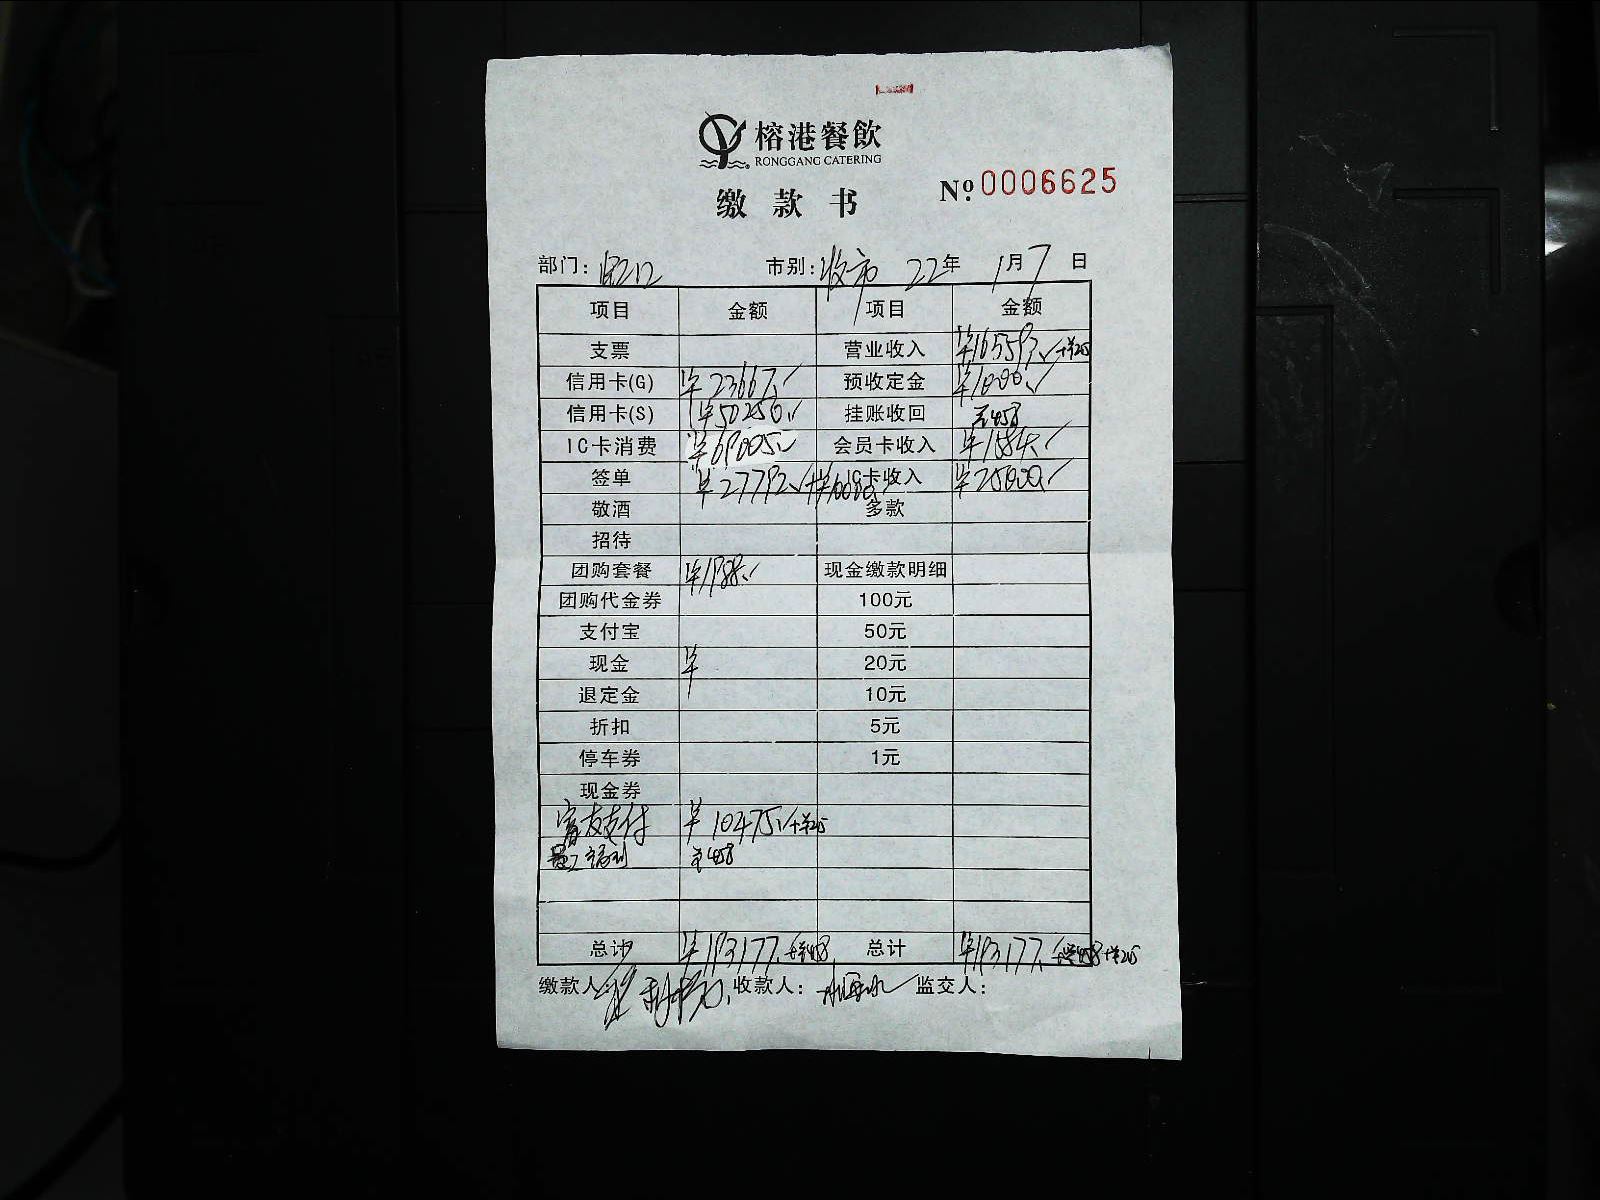 榕港餐飲
RONGGANG CATERING
缴款书
№:0006625
部门: 市别:收市 22年 1月7日
项目 金额 项目 金额
支票 营业收入
信用卡(G) ¥23667. 预收定金 ¥1000.
信用卡(S) ¥50250. 挂账收回 ¥458
IC卡消费 ¥69005. 会员卡收入 ¥1584.
签单 ¥27792. IC卡收入 ¥25000.
敬酒 多款
招待
团购套餐 ¥1988. 现金缴款明细
团购代金券 100元
支付宝 50元
现金 ¥ 20元
退定金 10元
折扣 5元
停车券 1元
现金券
支付 ¥10475.
员工福利 ¥458
总计 ¥193177. 总计 ¥193177.
缴款人: 收款人: 监交人: